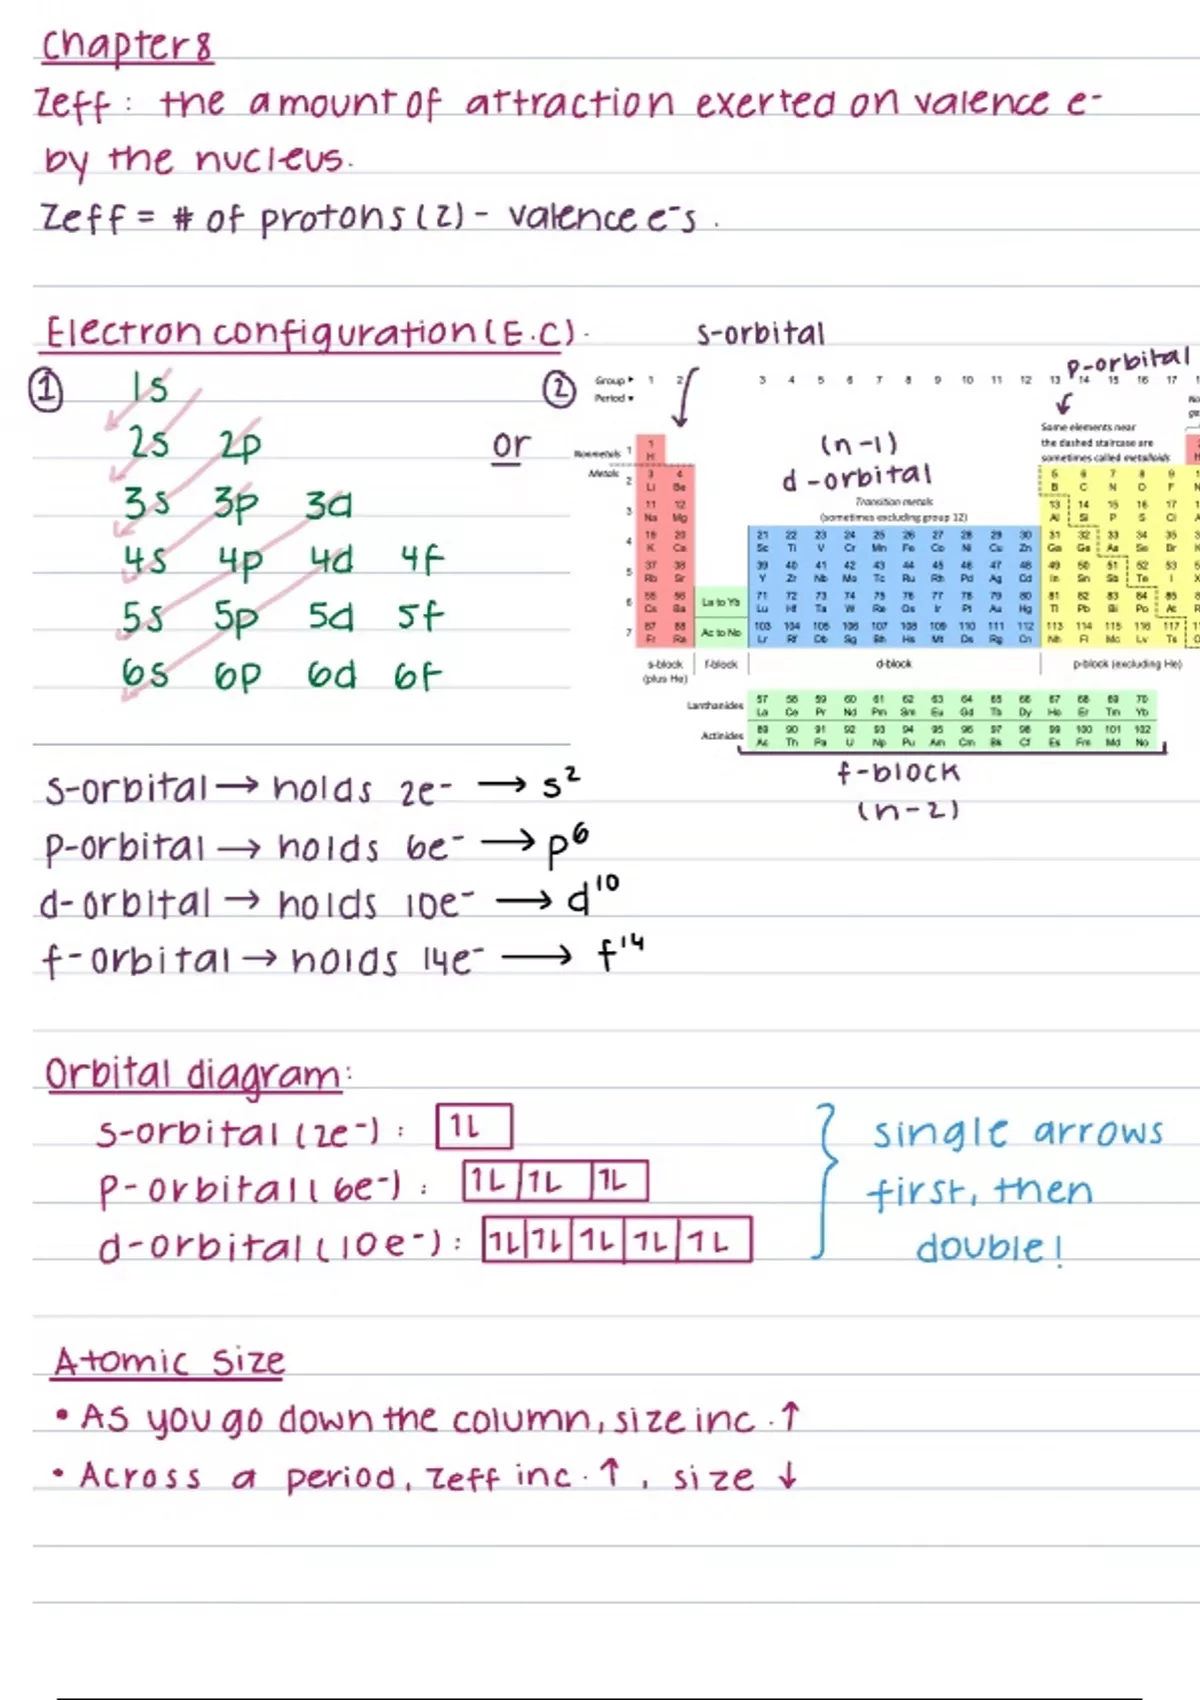 Chapter 8
Zeff: the amount of attraction exerted on valence e-
by the nucleus.
Zeff = # of protons (Z) - valence e-s.
Electron configuration (E.C).
① 1s
2s 2p
3s 3p 3d
4s 4p 4d 4f
5s 5p 5d 5f
6s 6p 6d 6f
or
②
s-orbital
p-orbital
Group 1 2 3 4 5 6 7 8 9 10 11 12 13 14 15 16 17
Period
Some elements near
the dashed staircase are
sometimes called metalloids
(n-1)
d-orbital
Transition metals
(sometimes excluding group 12)
Nonmetals 1
Metals
1
H
2 3 4 5 6 7 8 9
Li Be B C N O F
3 11 12 13 14 15 16 17
Na Mg Al Si P S Cl
4 19 20 21 22 23 24 25 26 27 28 29 30 31 32 33 34 35
K Ca Sc Ti V Cr Mn Fe Co Ni Cu Zn Ga Ge As Se Br
5 37 38 39 40 41 42 43 44 45 46 47 48 49 50 51 52 53
Rb Sr Y Zr Nb Mo Tc Ru Rh Pd Ag Cd In Sn Sb Te I
6 55 56 La to Yb 71 72 73 74 75 76 77 78 79 80 81 82 83 84 85
Cs Ba Lu Hf Ta W Re Os Ir Pt Au Hg Tl Pb Bi Po At
7 87 88 Ac to No 103 104 105 106 107 108 109 110 111 112 113 114 115 116 117
Fr Ra Lr Rf Db Sg Bh Hs Mt Ds Rg Cn Nh Fl Mc Lv Ts
s-block f-block d-block p-block (excluding He)
(plus He)
Lanthanides 57 58 59 60 61 62 63 64 65 66 67 68 69 70
La Ce Pr Nd Pm Sm Eu Gd Tb Dy Ho Er Tm Yb
Actinides 89 90 91 92 93 94 95 96 97 98 99 100 101 102
Ac Th Pa U Np Pu Am Cm Bk Cf Es Fm Md No
f-block
(n-2)
s-orbital → holds 2e- → s²
p-orbital → holds 6e- → p⁶
d-orbital → holds 10e- → d¹⁰
f-orbital → holds 14e- → f¹⁴
Orbital diagram:
s-orbital (2e-):
p-orbital (6e-):
d-orbital (10e-):
single arrows
first, then
double!
Atomic Size
• As you go down the column, size inc. ↑
• Across a period, Zeff inc. ↑, size ↓